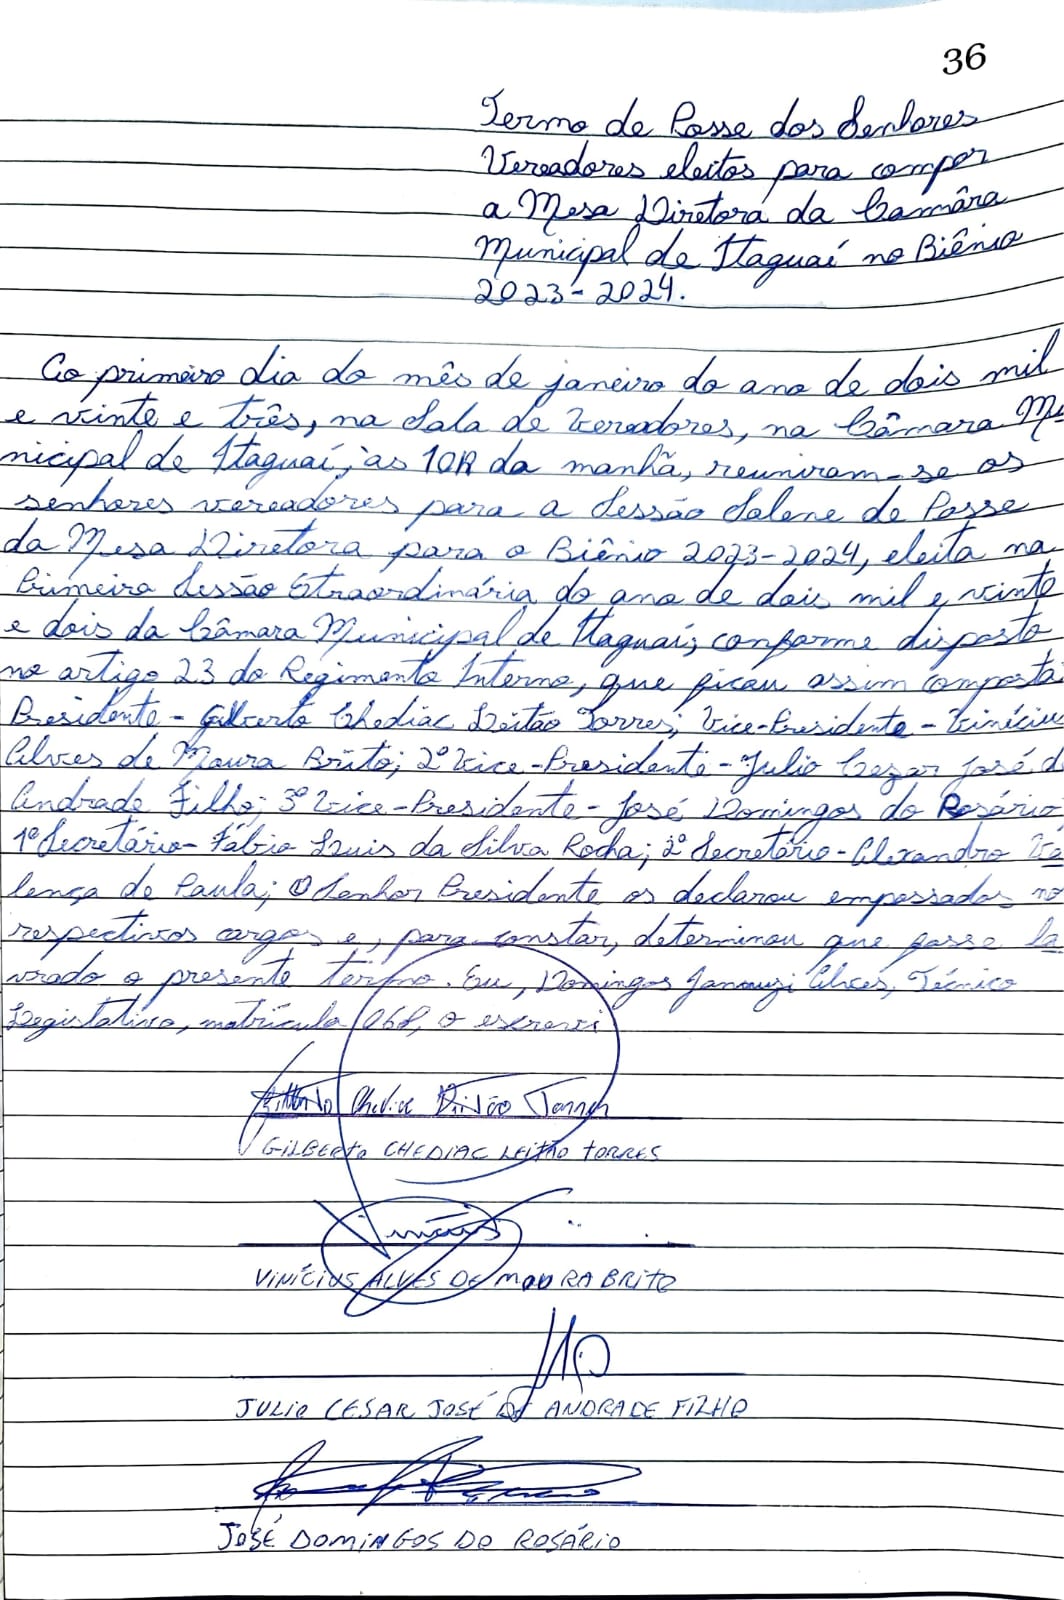 36
Termo de Posse dos Senhores
Vereadores eleitos para compor
a Mesa Diretora da Câmâra
Municipal de Itaguaí no Biênio
2023-2024.
Ao primeiro dia do mês de janeiro do ano de dois mil
e vinte e três, na Sala de Vereadores, na Câmara Mu-
nicipal de Itaguaí, às 10h da manhã, reuniram-se os
senhores vereadores para a Sessão Solene de Posse
da Mesa Diretora para o Biênio 2023-2024, eleita na
Primeira Sessão Extraordinária do ano de dois mil e vinte
e dois da Câmara Municipal de Itaguaí, conforme disposto
no artigo 23 do Regimento Interno, que ficou assim composta:
Presidente - Gilberto Chediac Leitão Torres; Vice-Presidente - Vinícius
Alves de Moura Brito; 2º Vice-Presidente - Julio Cezar José de
Andrade Filho; 3º Vice-Presidente - José Domingos do Rosário;
1º Secretário - Fábio Luis da Silva Rocha; 2º Secretário - Alexandro Va
lença de Paula; O Senhor Presidente os declarou empossados no
respectivos cargos e, para constar, determinou que fosse la
vrado o presente termo. Eu, Domingos Alves, Técnico
Legislativo, matrícula o escrevi
Gilberto Chediac Leitão Torres
GILBERTO CHEDIAC LEITÃO TORRES
Vinícius
VINÍCIUS ALVES DE MOURA BRITO
JULIO CESAR JOSÉ DE ANDRADE FILHO
JOSÉ DOMINGOS DO ROSÁRIO